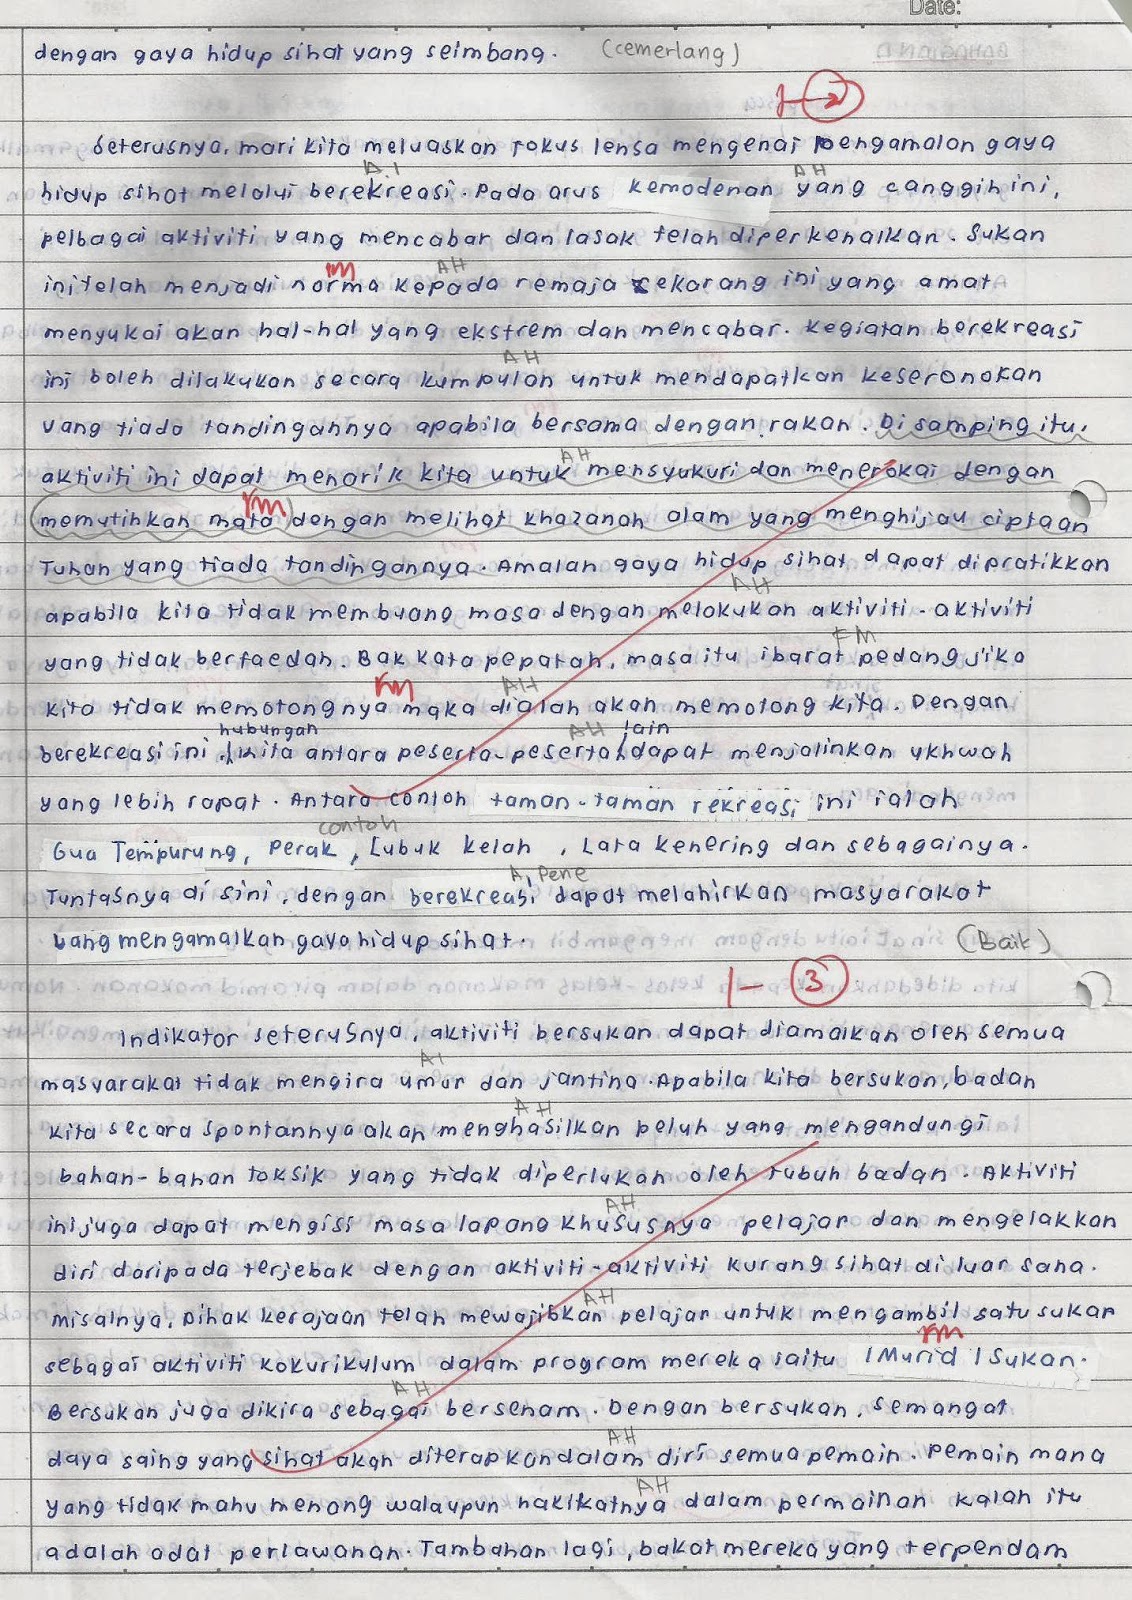 Date:
dengan gaya hidup sihat yang seimbang. (cemerlang)
1 → 2
Seterusnya, mari kita meluaskan fokus lensa mengenai pengamalan gaya
A.I AH
hidup sihat melalui berekreasi. Pada arus kemodenan yang canggih ini,
pelbagai aktiviti yang mencabar dan lasak telah diperkenalkan. Sukan
FM AH
ini telah menjadi norma kepada remaja sekarang ini yang amat
menyukai akan hal-hal yang ekstrem dan mencabar. Kegiatan berekreasi
AH
ini boleh dilakukan secara kumpulan untuk mendapatkan keseronokan
yang tiada tandingannya apabila bersama dengan rakan. Di samping itu,
AH
aktiviti ini dapat menarik kita untuk mensyukuri dan menerokai dengan
FM
memutihkan mata dengan melihat khazanah alam yang menghijau ciptaan
Tuhan yang tiada tandingannya. Amalan gaya hidup sihat dapat dipratikkan
AH
apabila kita tidak membuang masa dengan melakukan aktiviti-aktiviti
FM
yang tidak berfaedah. Bak kata pepatah, masa itu ibarat pedang jika
FM AH
kita tidak memotongnya maka dialah akan memotong kita. Dengan
hubungan AH lain
berekreasi ini, kita antara peserta-peserta dapat menjalinkan ukhwah
yang lebih rapat. Antara contoh taman-taman rekreasi ini ialah
contoh
Gua Tempurung, Perak, Lubuk Kelah, Lata Kenering dan sebagainya.
A, Pene
Tuntasnya di sini, dengan berekreasi dapat melahirkan masyarakat
yang mengamalkan gaya hidup sihat. (Baik)
1 - 3
Indikator seterusnya, aktiviti bersukan dapat diamalkan oleh semua
AI
masyarakat tidak mengira umur dan jantina. Apabila kita bersukan, badan
AH
kita secara spontannya akan menghasilkan peluh yang mengandungi
bahan-bahan toksik yang tidak diperlukan oleh tubuh badan. Aktiviti
AH
ini juga dapat mengisi masa lapang khususnya pelajar dan mengelakkan
diri daripada terjebak dengan aktiviti-aktiviti kurang sihat di luar sana.
AH
Misalnya, pihak kerajaan telah mewajibkan pelajar untuk mengambil satu sukan
FM
sebagai aktiviti kokurikulum dalam program mereka iaitu 1 Murid 1 Sukan.
AH
Bersukan juga dikira sebagai bersenam. Dengan bersukan, semangat
AH
daya saing yang sihat akan diterapkan dalam diri semua pemain. Pemain mana
AH
yang tidak mahu menang walaupun hakikatnya dalam permainan kalah itu
adalah adat perlawanan. Tambahan lagi, bakat mereka yang terpendam